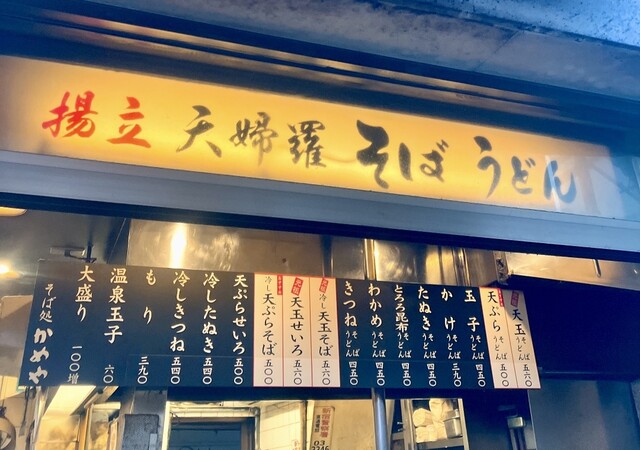 揚立 天婦羅 そば うどん
天玉 そば うどん 五六〇
天ぷら そば うどん 五〇〇
玉子 そば うどん 四五〇
かけ そば うどん 三九〇
たぬき そば うどん 四五〇
とろろ昆布 そば うどん 四五〇
わかめ そば うどん 四五〇
きつね そば うどん 四五〇
冷し天玉そば 五六〇
天玉せいろ 五六〇
冷し天ぷらそば 五〇〇
天ぷらせいろ 五〇〇
冷したぬき 五四〇
冷しきつね 五四〇
もり 三九〇
温泉玉子 六〇
大盛り 一〇〇増
そば処 かめや
新宿警察署
03
3346